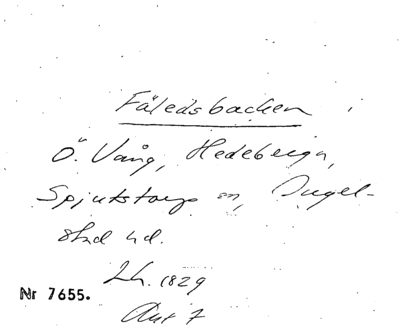 Fäledsbacken
Ö. Vång, Hedeberga,
Spjutstorps sn, Ingel-
stad hd.
Lh. 1829
Nr 7655.
Akt 7